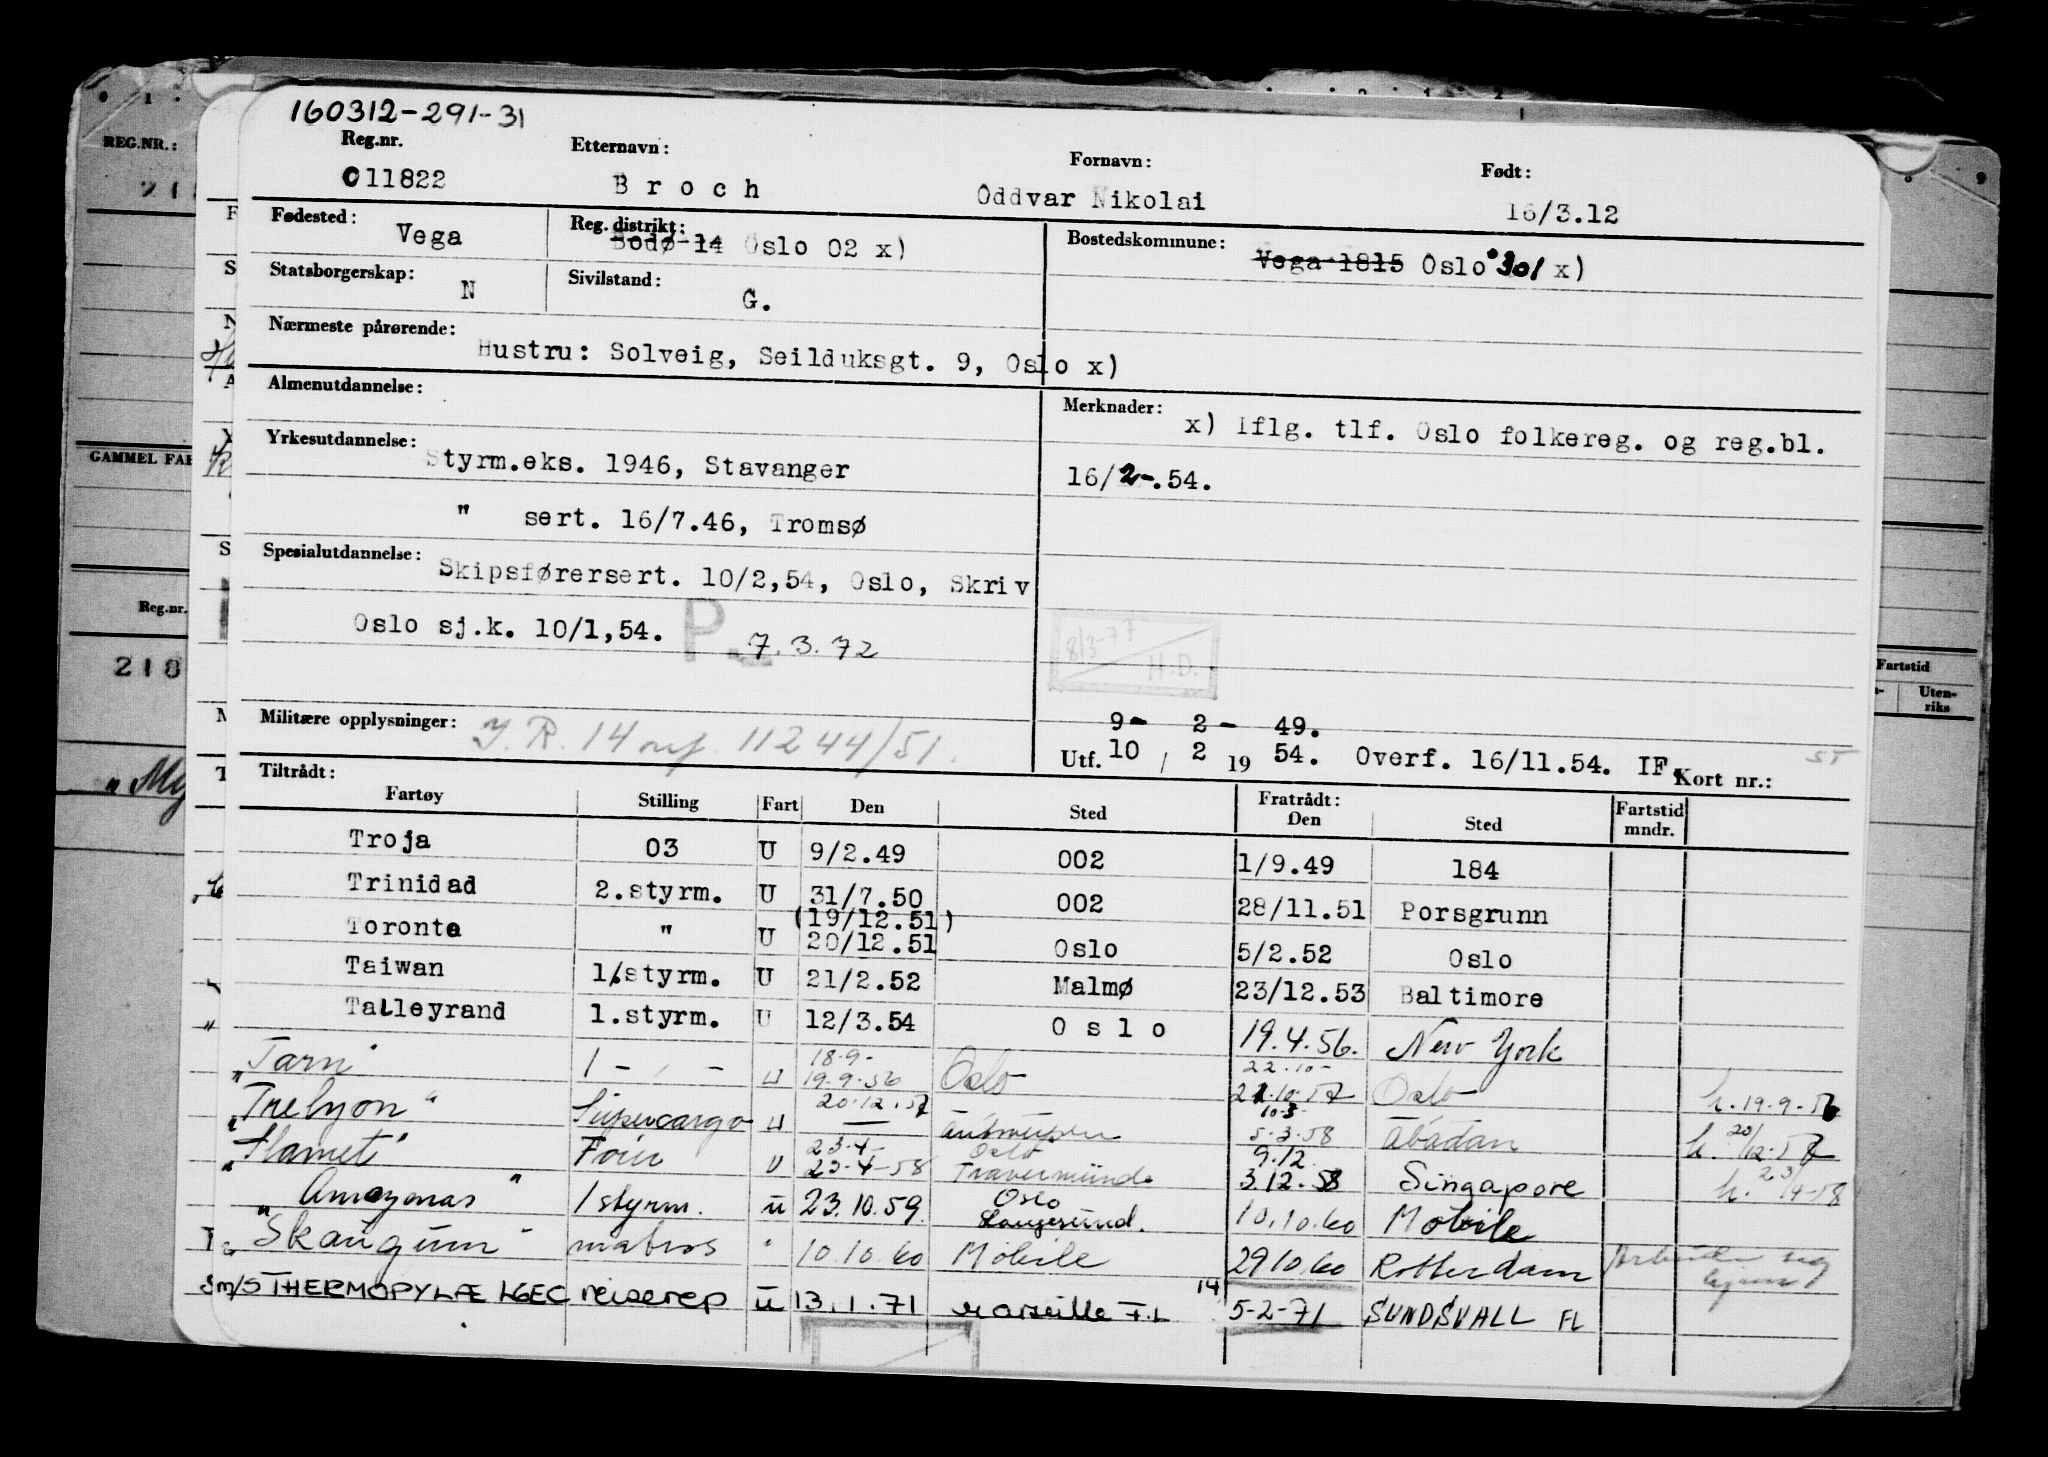 160312-291-31
Reg.nr. Etternavn: Fornavn: Født:
011822 Broch Oddvar Nikolai 16/3.12
Fødested: Vega Reg. distrikt: Bodø 14 Oslo 02 x) Bostedskommune: Vega 1815 Oslo 0301 x)
Statsborgerskap: N Sivilstand: G.
Nærmeste pårørende: Hustru: Solveig, Seilduksgt. 9, Oslo x)
Almenutdannelse: Merknader: x) Iflg. tlf. Oslo folkereg. og reg.bl.
16/2-.54.
Yrkesutdannelse: Styrm.eks. 1946, Stavanger
" sert. 16/7.46, Tromsø
Spesialutdannelse: Skipsførersert. 10/2,54, Oslo, Skriv
Oslo sj.k. 10/1,54. P. 7.3.72
8/3-77
H.D.
Militære opplysninger: I.R. 14 11244/51.
9- 2- 49.
Utf. 10 / 2 19 54. Overf. 16/11.54. IF. Kort nr.:
Tiltrådt: Fratrådt:
Fartøy Stilling Fart Den Sted Den Sted Fartstid mndr.
Troja 03 U 9/2.49 002 1/9.49 184
Trinidad 2.styrm. U 31/7.50 002 28/11.51 Porsgrunn
(19/12.51)
Toronto " U 20/12.51 Oslo 5/2.52 Oslo
Taiwan 1.styrm. U 21/2.52 Malmø 23/12.53 Baltimore
Talleyrand 1.styrm. U 12/3.54 Oslo 19.4.56. New York
18.9- 22.10-
"Tarn" 1 - " - U 19.9.56 Oslo 21.10.57 Oslo h. 19.9-56
20.12.57 10-3-
"Trelyon" Supercargo U — Antwerpen 5.3.58 Abadan h. 20/12.57
23.4- Oslo 9.12.
"Slamet" Fører U 23.4-58 Travemünde 3.12.58 Singapore h. 23/4-58
"Amazonas" 1 styrm. U 23.10.59. Oslo Langesund. 10.10.60 Mobile
"Skaugum" matros " 10.10.60 Mobile 29.10.60 Rotterdam Arbeidet seg hjem
M/S THERMOPYLÆ LGEC reiserep U 13.1.71 Marseille F.L 14 5-2-71 SUNDSVALL FL
REG.NR.:
GAMMEL FAR
Reg.nr.
218
Fartstid
Uten-
riks